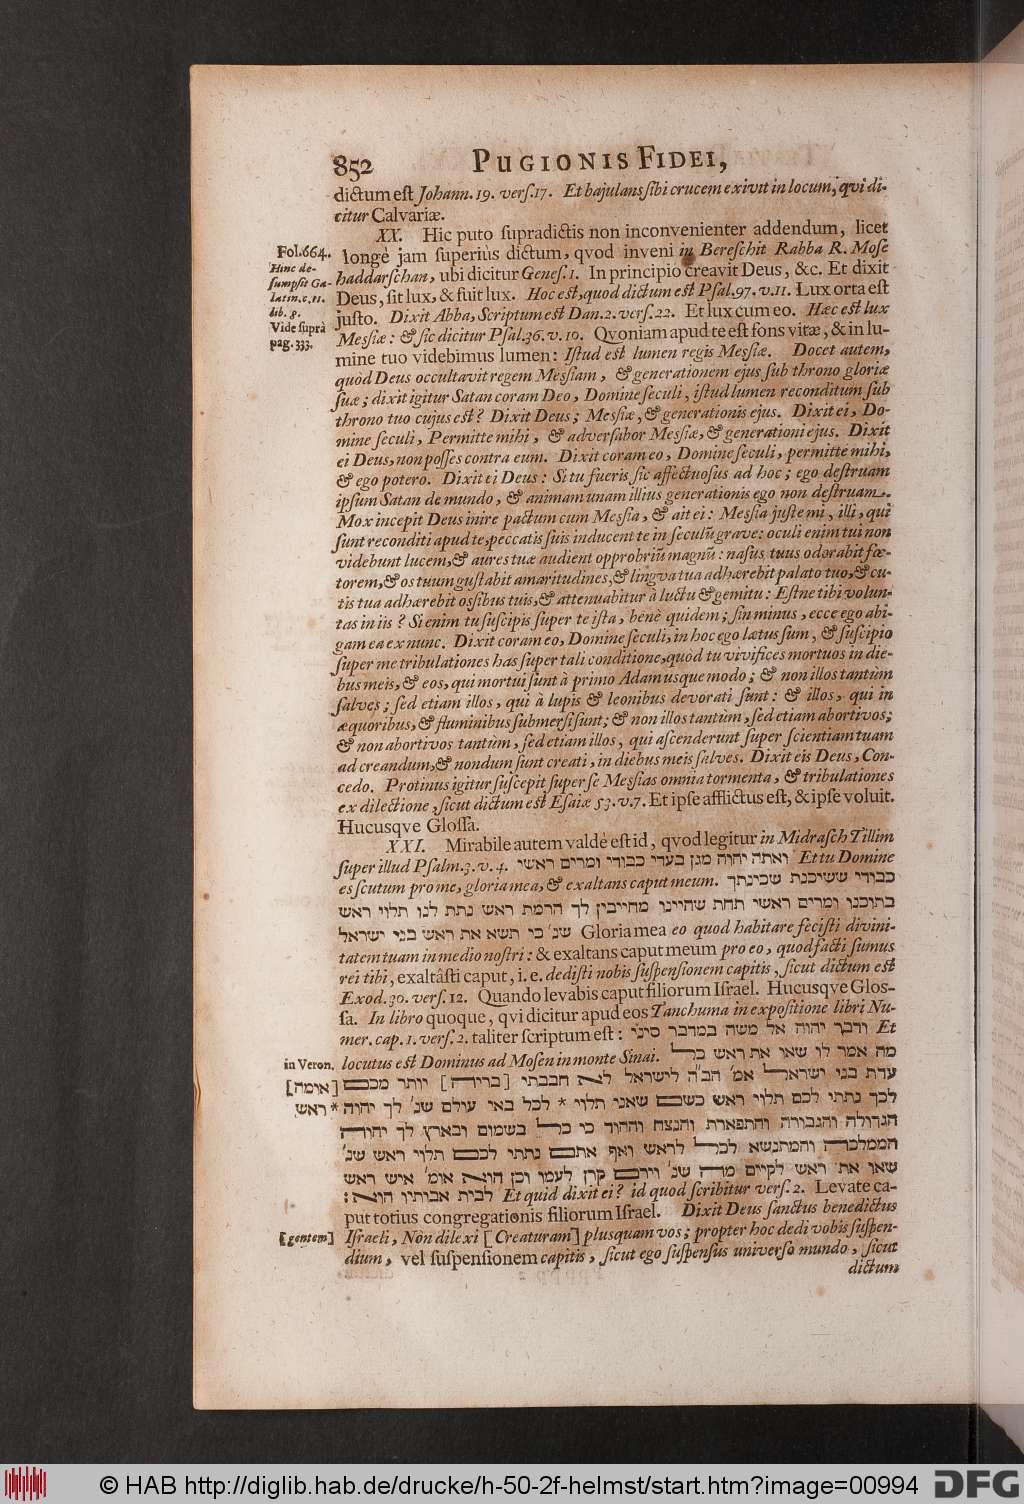 852 PUGIONIS FIDEI,
dictum est Johann. 19. vers. 17. Et bajulans sibi crucem exivit in locum, qvi di-
citur Calvariæ.
XX. Hic puto supradictis non inconvenienter addendum, licet
Fol. 664.
longè jam superiùs dictum, qvod inveni in Bereschit Rabba R. Mose
Hinc de-
sumpsit Ga-
latin. c. 11.
lib. 8.
Vide suprà
pag. 333.
haddarschan, ubi dicitur Genes. 1. In principio creavit Deus, &c. Et dixit
Deus, sit lux, & fuit lux. Hoc est, quod dictum est Psal. 97. v. 11. Lux orta est
justo. Dixit Abba, Scriptum est Dan. 2. vers. 22. Et lux cum eo. Hæc est lux
Messiæ: & sic dicitur Psal. 36. v. 10. Qvoniam apud te est fons vitæ, & in lu-
mine tuo videbimus lumen: Istud est lumen regis Messiæ. Docet autem,
quòd Deus occultavit regem Messiam, & generationem ejus sub throno gloriæ
suæ; dixit igitur Satan coram Deo, Domine seculi, istud lumen reconditum sub
throno tuo cujus est? Dixit Deus; Messiæ, & generationis ejus. Dixit ei, Do-
mine seculi, Permitte mihi, & adversabor Messiæ, & generationi ejus. Dixit
ei Deus, non posses contra eum. Dixit coram eo, Domine seculi, permitte mihi,
& ego potero. Dixit ei Deus: Si tu fueris sic affectuosus ad hoc; ego destruam
ipsum Satan de mundo, & animam unam illius generationis ego non destruam.
Mox incepit Deus inire pactum cum Messia, & ait ei: Messia juste mi, illi, qui
sunt reconditi apud te, peccatis suis inducent te in seculũ grave: oculi enim tui non
videbunt lucem, & aures tuæ audient opprobriũ magnũ: nasus tuus odorabit fœ-
torem, & os tuum gustabit amaritudines, & lingva tua adhærebit palato tuo, & cu-
tis tua adhærebit ossibus tuis, & attenuabitur à luctu & gemitu: Estne tibi volun-
tas in iis? Si enim tu suscipis super te ista, benè quidem; sin minus, ecce ego abi-
gam ea ex nunc. Dixit coram eo, Domine seculi, in hoc ego lætus sum, & suscipio
super me tribulationes has super tali conditione, quòd tu vivifices mortuos in die-
bus meis, & eos, qui mortui sunt à primo Adam usque modo; & non illos tantùm
salves; sed etiam illos, qui à lupis & leonibus devorati sunt: & illos, qui in
æquoribus, & fluminibus submersi sunt; & non illos tantùm, sed etiam abortivos;
& non abortivos tantùm, sed etiam illos, qui ascenderunt super scientiam tuam
ad creandum, & nondum sunt creati, in diebus meis salves. Dixit eis Deus, Con-
cedo. Protinus igitur suscepit super se Messias omnia tormenta, & tribulationes
ex dilectione, sicut dictum est Esaiæ 53. v. 7. Et ipse afflictus est, & ipse voluit.
Hucusqve Glossa.
XXI. Mirabile autem valdè est id, qvod legitur in Midrasch Tillim
super illud Psalm. 3. v. 4. ואתה יהוה מגן בעדי כבודי ומרים ראשי Et tu Domine
es scutum pro me, gloria mea, & exaltans caput meum. כבודי ששיכנת שכינתך
בתוכנו ומרים ראשי תחת שהיינו מחייבין לך הרמת ראש נתת לנו תלוי ראש
שנ' כי תשא את ראש בני ישראל Gloria mea eo quod habitare fecisti divini-
tatem tuam in medio nostri: & exaltans caput meum pro eo, quod facti sumus
rei tibi, exaltâsti caput, i. e. dedisti nobis suspensionem capitis, sicut dictum est
Exod. 30. vers. 12. Quando levabis caput filiorum Israel. Hucusqve Glos-
sa. In libro quoque, qvi dicitur apud eos Tanchuma in expositione libri Nu-
mer. cap. 1. vers. 2. taliter scriptum est: וידבר יהוה אל משה במדבר סיני Et
in Veron. locutus est Dominus ad Mosen in monte Sinai. מה אמר לו שאו את ראש כל
עדת בני ישראל אמ' הב"ה לישראל לא חבבתי [בריה] יותר מכם [אומה]
לכך נתתי לכם תלוי ראש כשם שאני תלוי * לכל באי עולם שנ' לך יהוה * ראש
הגדולה והגבורה והתפארת והנצח וההוד כי כל בשמום ובארץ לך יהוה
הממלכה והמתנשא לכל לראש ואף אתם נתתי לכם תלוי ראש שנ'
שאו את ראש לקיים מה שנ' וירם קרן לעמו וכן הוא אומ' איש ראש
לבית אבותיו הוא: Et quid dixit ei? id quod scribitur vers. 2. Levate ca-
put totius congregationis filiorum Israel. Dixit Deus sanctus benedictus
[gentem] Israeli, Non dilexi [Creaturam] plusquam vos; propter hoc dedi vobis suspen-
dium, vel suspensionem capitis, sicut ego suspensus universo mundo, sicut
dictum
© HAB http://diglib.hab.de/drucke/h-50-2f-helmst/start.htm?image=00994 DFG